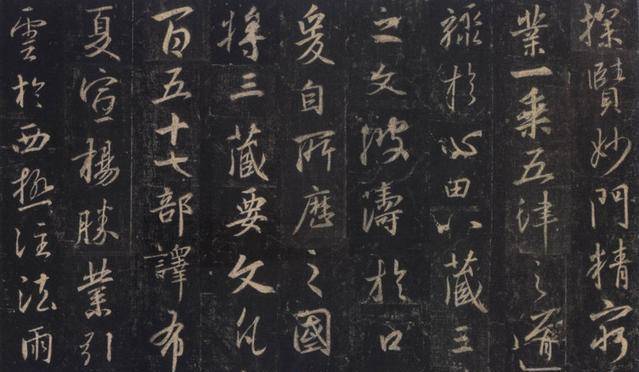 探賾妙門精窮
業一乘五律之道
馳於心田八藏三
之文波濤於口
爰自所歷之國
將三藏要文凡
百五十七部譯布
夏宣揚勝業引
雲於西極注法雨